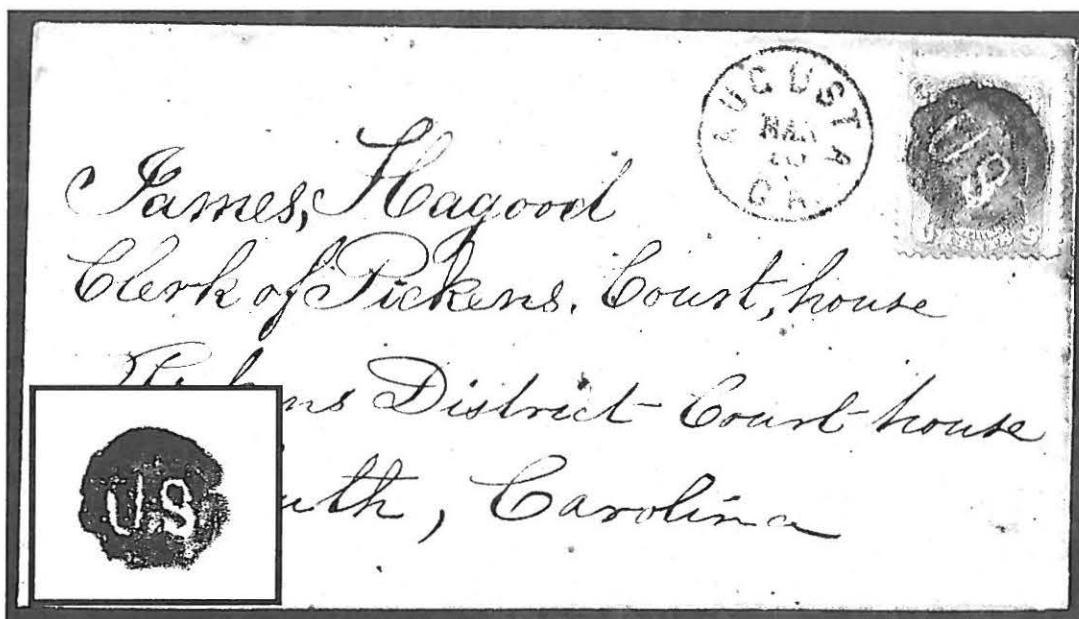 AUGUSTA
MAR
GA.
US
James, Hagood
Clerk of Pickens. Court, house
District Court house
Carolina
US